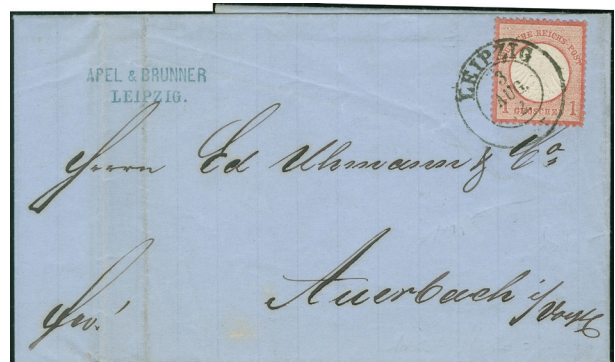 APEL & BRUNNER
LEIPZIG.
LEIPZIG
3
AUG
REICHS-POST
1 GROSCHE 1
Herrn Ed Uhmann & Co
Auerbach i/Voigtl
Fro!